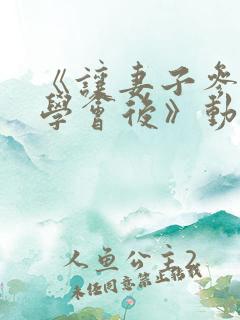 《讓妻子參
學會後》動
人魚公主2
未經同意禁止轉載